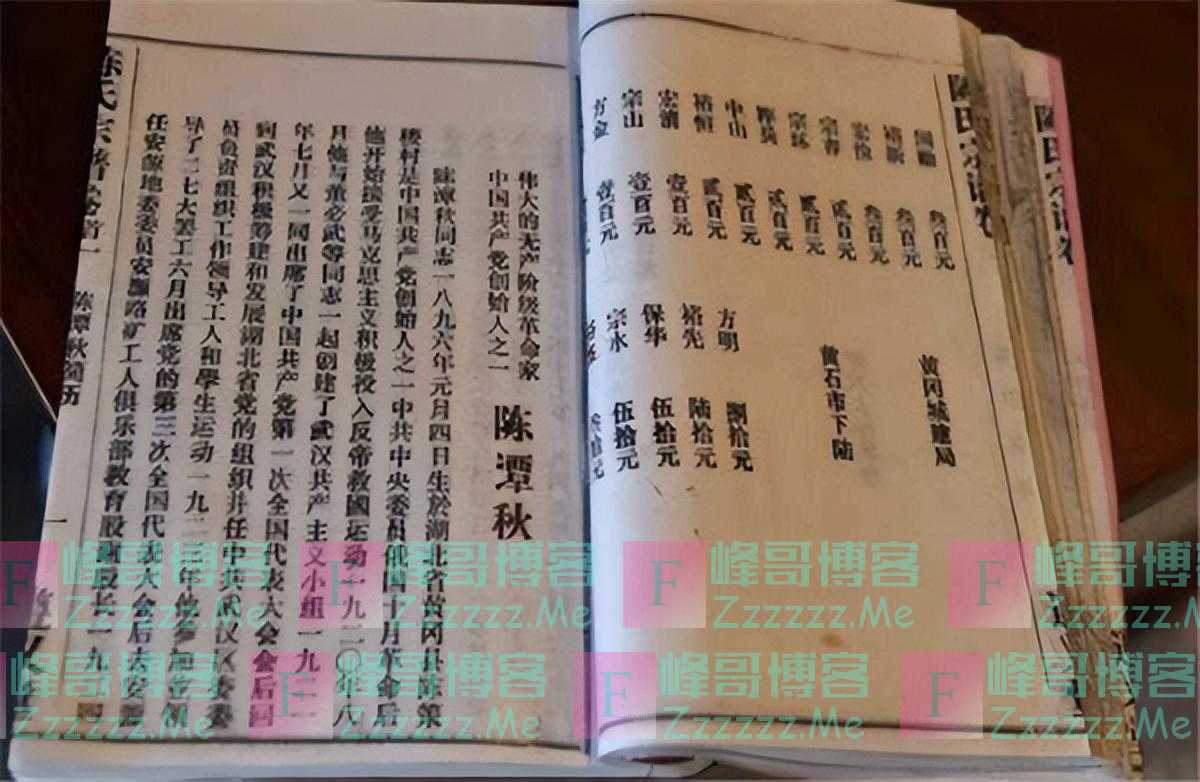 陈氏宗谱卷
陈氏宗谱卷
叁百元 黄冈城建局
叁百元
叁百元
宗春 贰百元 黄石市下陆
贰百元
贰百元
中山 贰百元 方明 捌拾元
裕恒 贰百元 裕先 陆拾元
宏清 壹百元 保华 伍拾元
宗山 壹百元 宗水 伍拾元
方金 壹百元 拾元
伟大的无产阶级革命家
中国共产党创始人之一
陈潭秋
陈潭秋同志一八九六年元月四日生於湖北省黄冈县陈策
楼村是中国共产党创始人之一中共中央委员俄国十月革命后
他开始接受马克思主义积极投入反帝救國运动一九二〇年八
月他与董必武等同志一起创建了武汉共产主义小组一九二一
年七月又一同出席了中国共产党第一次全国代表大会会后回
到武汉积极筹建和发展湖北省党的组织并任中共武汉区委委
员负责组织工作领导工人和學生运动一九二三年他参加领
导了二七大罢工六月出席党的第三次全国代表大会后去安源
任安源地委委员安源路矿工人俱乐部教育股股长一九二四
陈氏宗谱卷首一
陈潭秋简历
一
F 峰哥博客
Zzzzzz.Me
F 峰哥博客
Zzzzzz.Me
F 峰哥博客
Zzzzzz.Me
F 峰哥博客
Zzzzzz.Me
F 峰哥博客
Zzzzzz.Me
F 峰哥博客
Zzzzzz.Me
F 峰哥博客
Zzzzzz.Me